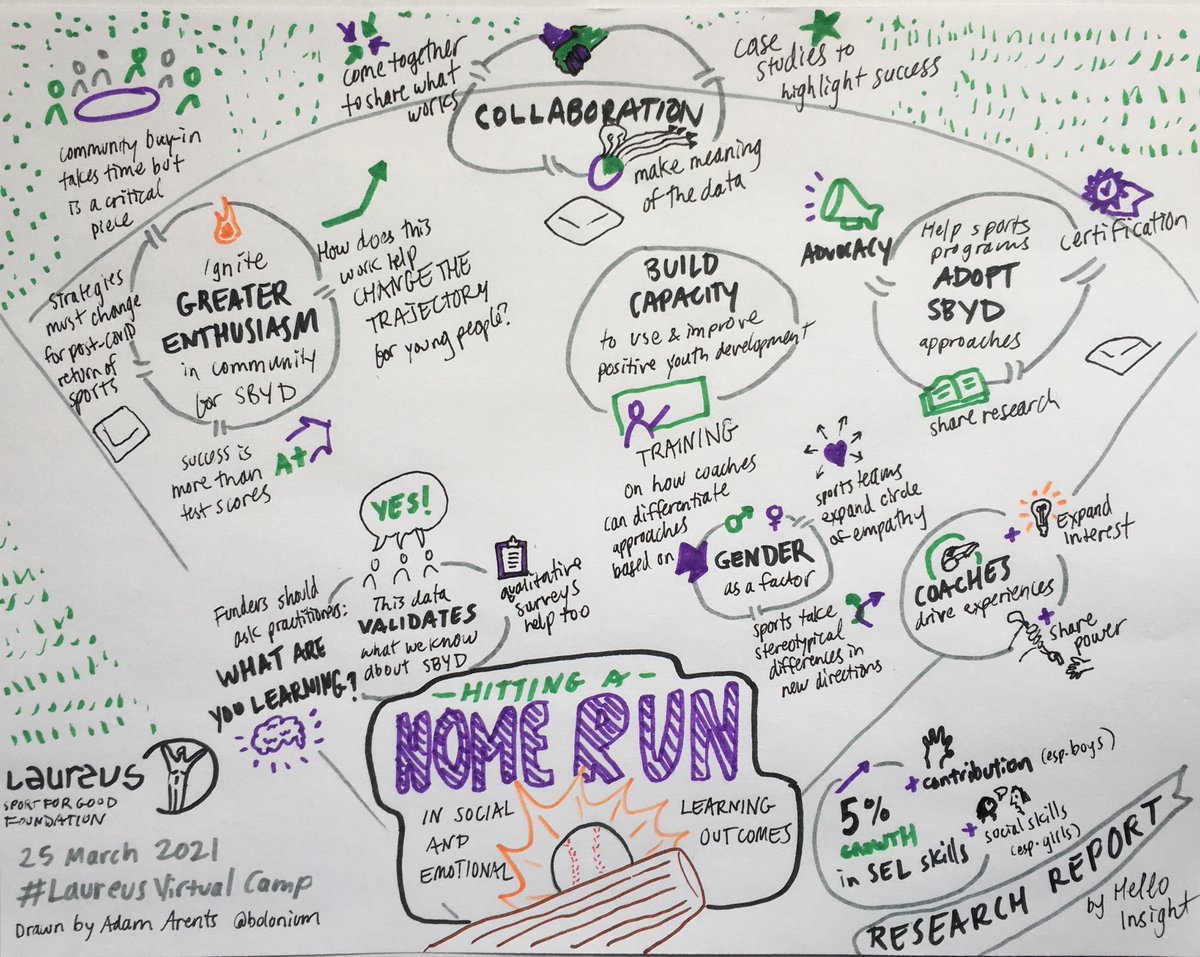 come together
to share what
works
COLLABORATION
make meaning
of the data
case
studies to
highlight success
community buy-in
takes time but
is a critical
piece
Strategies
must change
for post-covid
return of
sports
Ignite
GREATER
ENTHUSIASM
in community
for SBYD
How does this
work help
CHANGE THE
TRAJECTORY
for young people?
success is
more than
test scores
A+
BUILD
CAPACITY
to use & improve
positive youth development
TRAINING
on how coaches
can differentiate
approaches
based on
GENDER
as a factor
sports teams
expand circle
of empathy
sports take
stereotypical
differences in
new directions
ADVOCACY
Help sports
programs
ADOPT
SBYD
approaches
certification
share research
COACHES
drive experiences
+
Expand
Interest
+
share
power
Funders should
ask practitioners:
WHAT ARE
YOU LEARNING?
YES!
This data
VALIDATES
what we know
about SBYD
qualitative
surveys
help too
- HITTING A -
HOME RUN
IN SOCIAL
AND
EMOTIONAL
LEARNING
OUTCOMES
5%
GROWTH
in SEL skills
+ contribution (esp. boys)
+ social skills
(esp. girls)
RESEARCH REPORT
by Hello
Insight
LAUREUS
SPORT FOR GOOD
FOUNDATION
25 March 2021
#Laureus Virtual Camp
Drawn by Adam Arents @bolonium